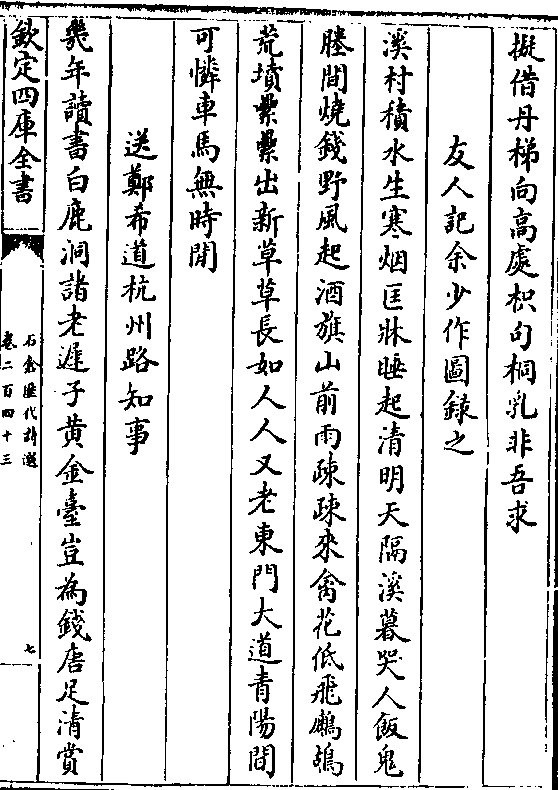 擬借丹梯向高處枳句桐乳非吾求
友人記余少作圖錄之
溪村積水生寒烟匡牀睡起清明天隔溪暮哭人飯鬼
塍間燒錢野風起酒旗山前雨疎疎來禽花低飛鷓鴣
荒墳纍纍出新草草長如人人又老東門大道青陽間
可憐車馬無時閒
送鄭希道杭州路知事
幾年讀書白鹿洞諸老遲子黃金臺豈為錢唐足清賞
欽定四庫全書
石倉歷代詩選
卷二百四十三
七